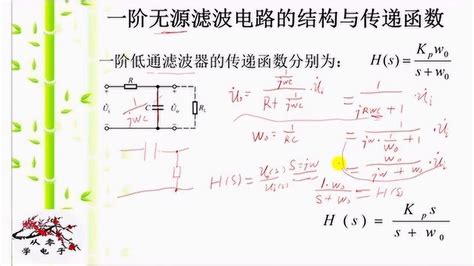 一阶无源滤波电路的结构与传递函数
一阶低通滤波器的传递函数分别为：
H(s)= K_p w_0 / (s+w_0)
R
U̇_i C U̇_o R_L
1/jwC
U̇_o = (1/jwC) / (R+1/jwC) · U̇_i = 1/(jRWC+1) U̇_i
w_0 = 1/RC = 1/(jw·1/w_0+1) · U̇_i
= w_0/(jw+w_0) · U̇_i
H(s)= U_o(s)/U_i(s) S=jw 1·w_0/(S+w_0) = H(S)
H(s)= K_p s / (s+w_0)
从零
学电子